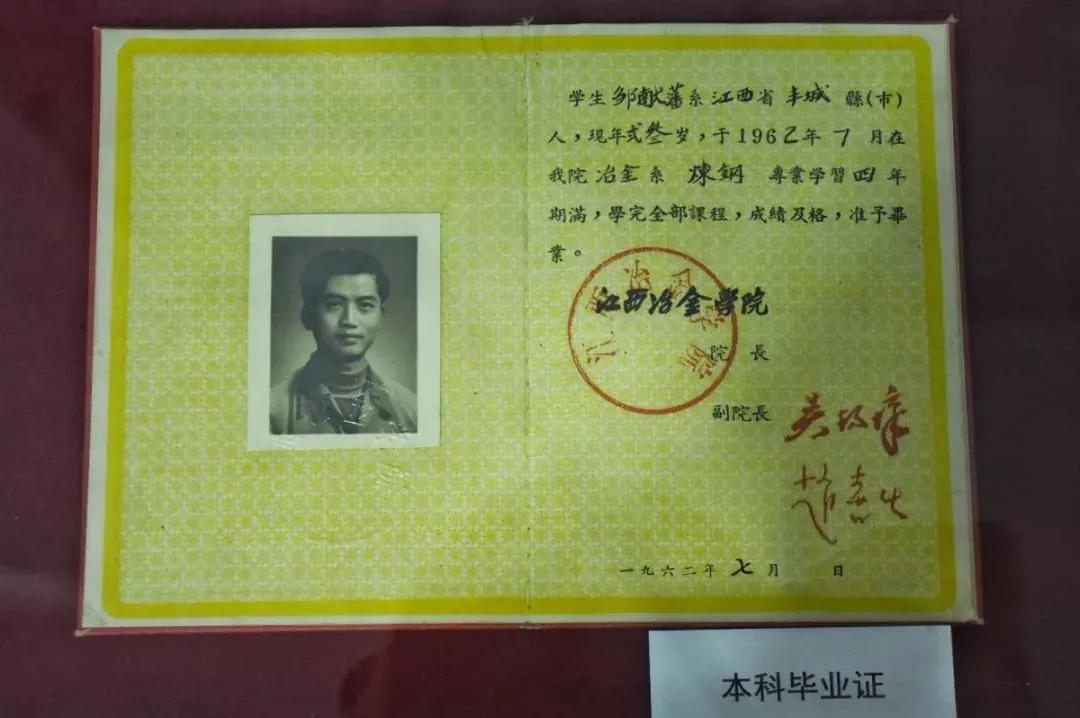 学生 邹献蕃系江西省丰城 縣(市)
人，現年弍叁岁，于1962年 7 月在
我院 冶金系 煉鋼 專業学習四年
期滿，學完全部課程，成績及格，准予畢
業。
江西冶金学院
院 長
副院長
一九六二年 七 月 日
本科毕业证